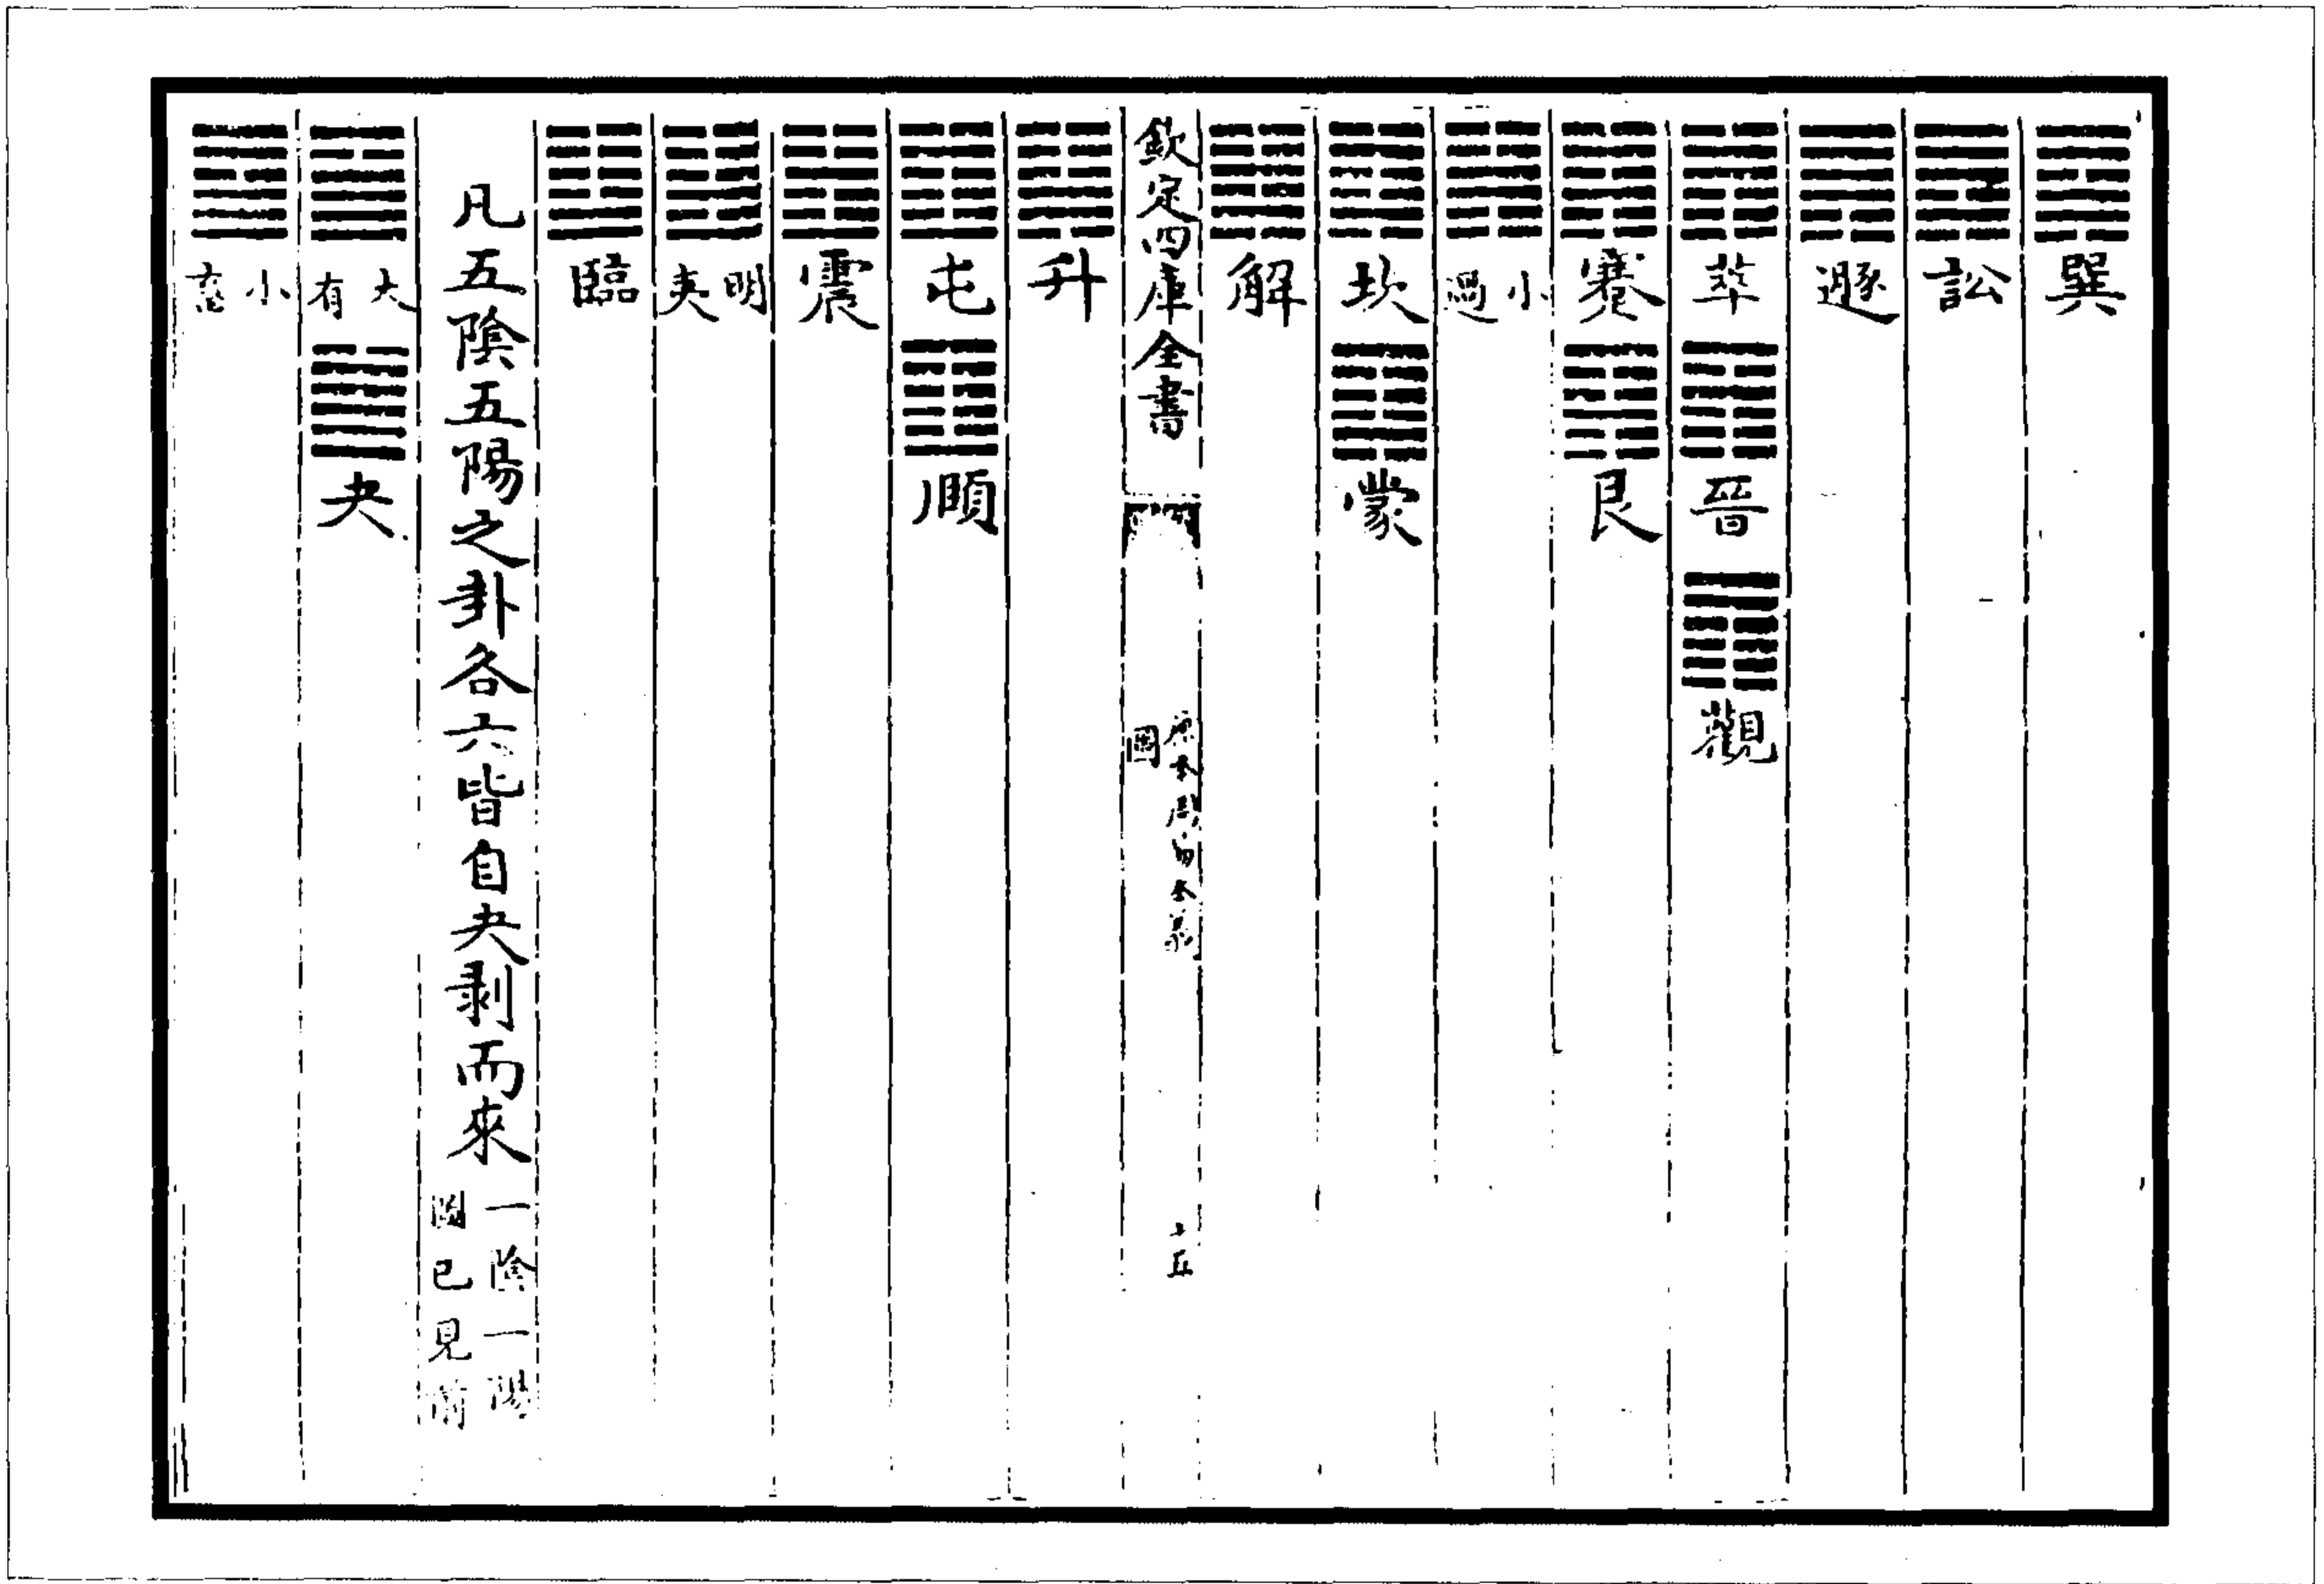 ䷸巽
䷅訟
䷠遯
䷬萃䷢晉䷓觀
䷦蹇䷳艮
䷽小過
䷜坎䷃蒙
䷧解
欽定四庫全書
原本周易本義
圖
十五
䷭升
䷂屯䷚頤
䷲震
䷣明夷
䷒臨
凡五陰五陽之卦各六皆自夬剥而來一陰一陽圖已見前
䷍大有䷪夬
䷈小畜